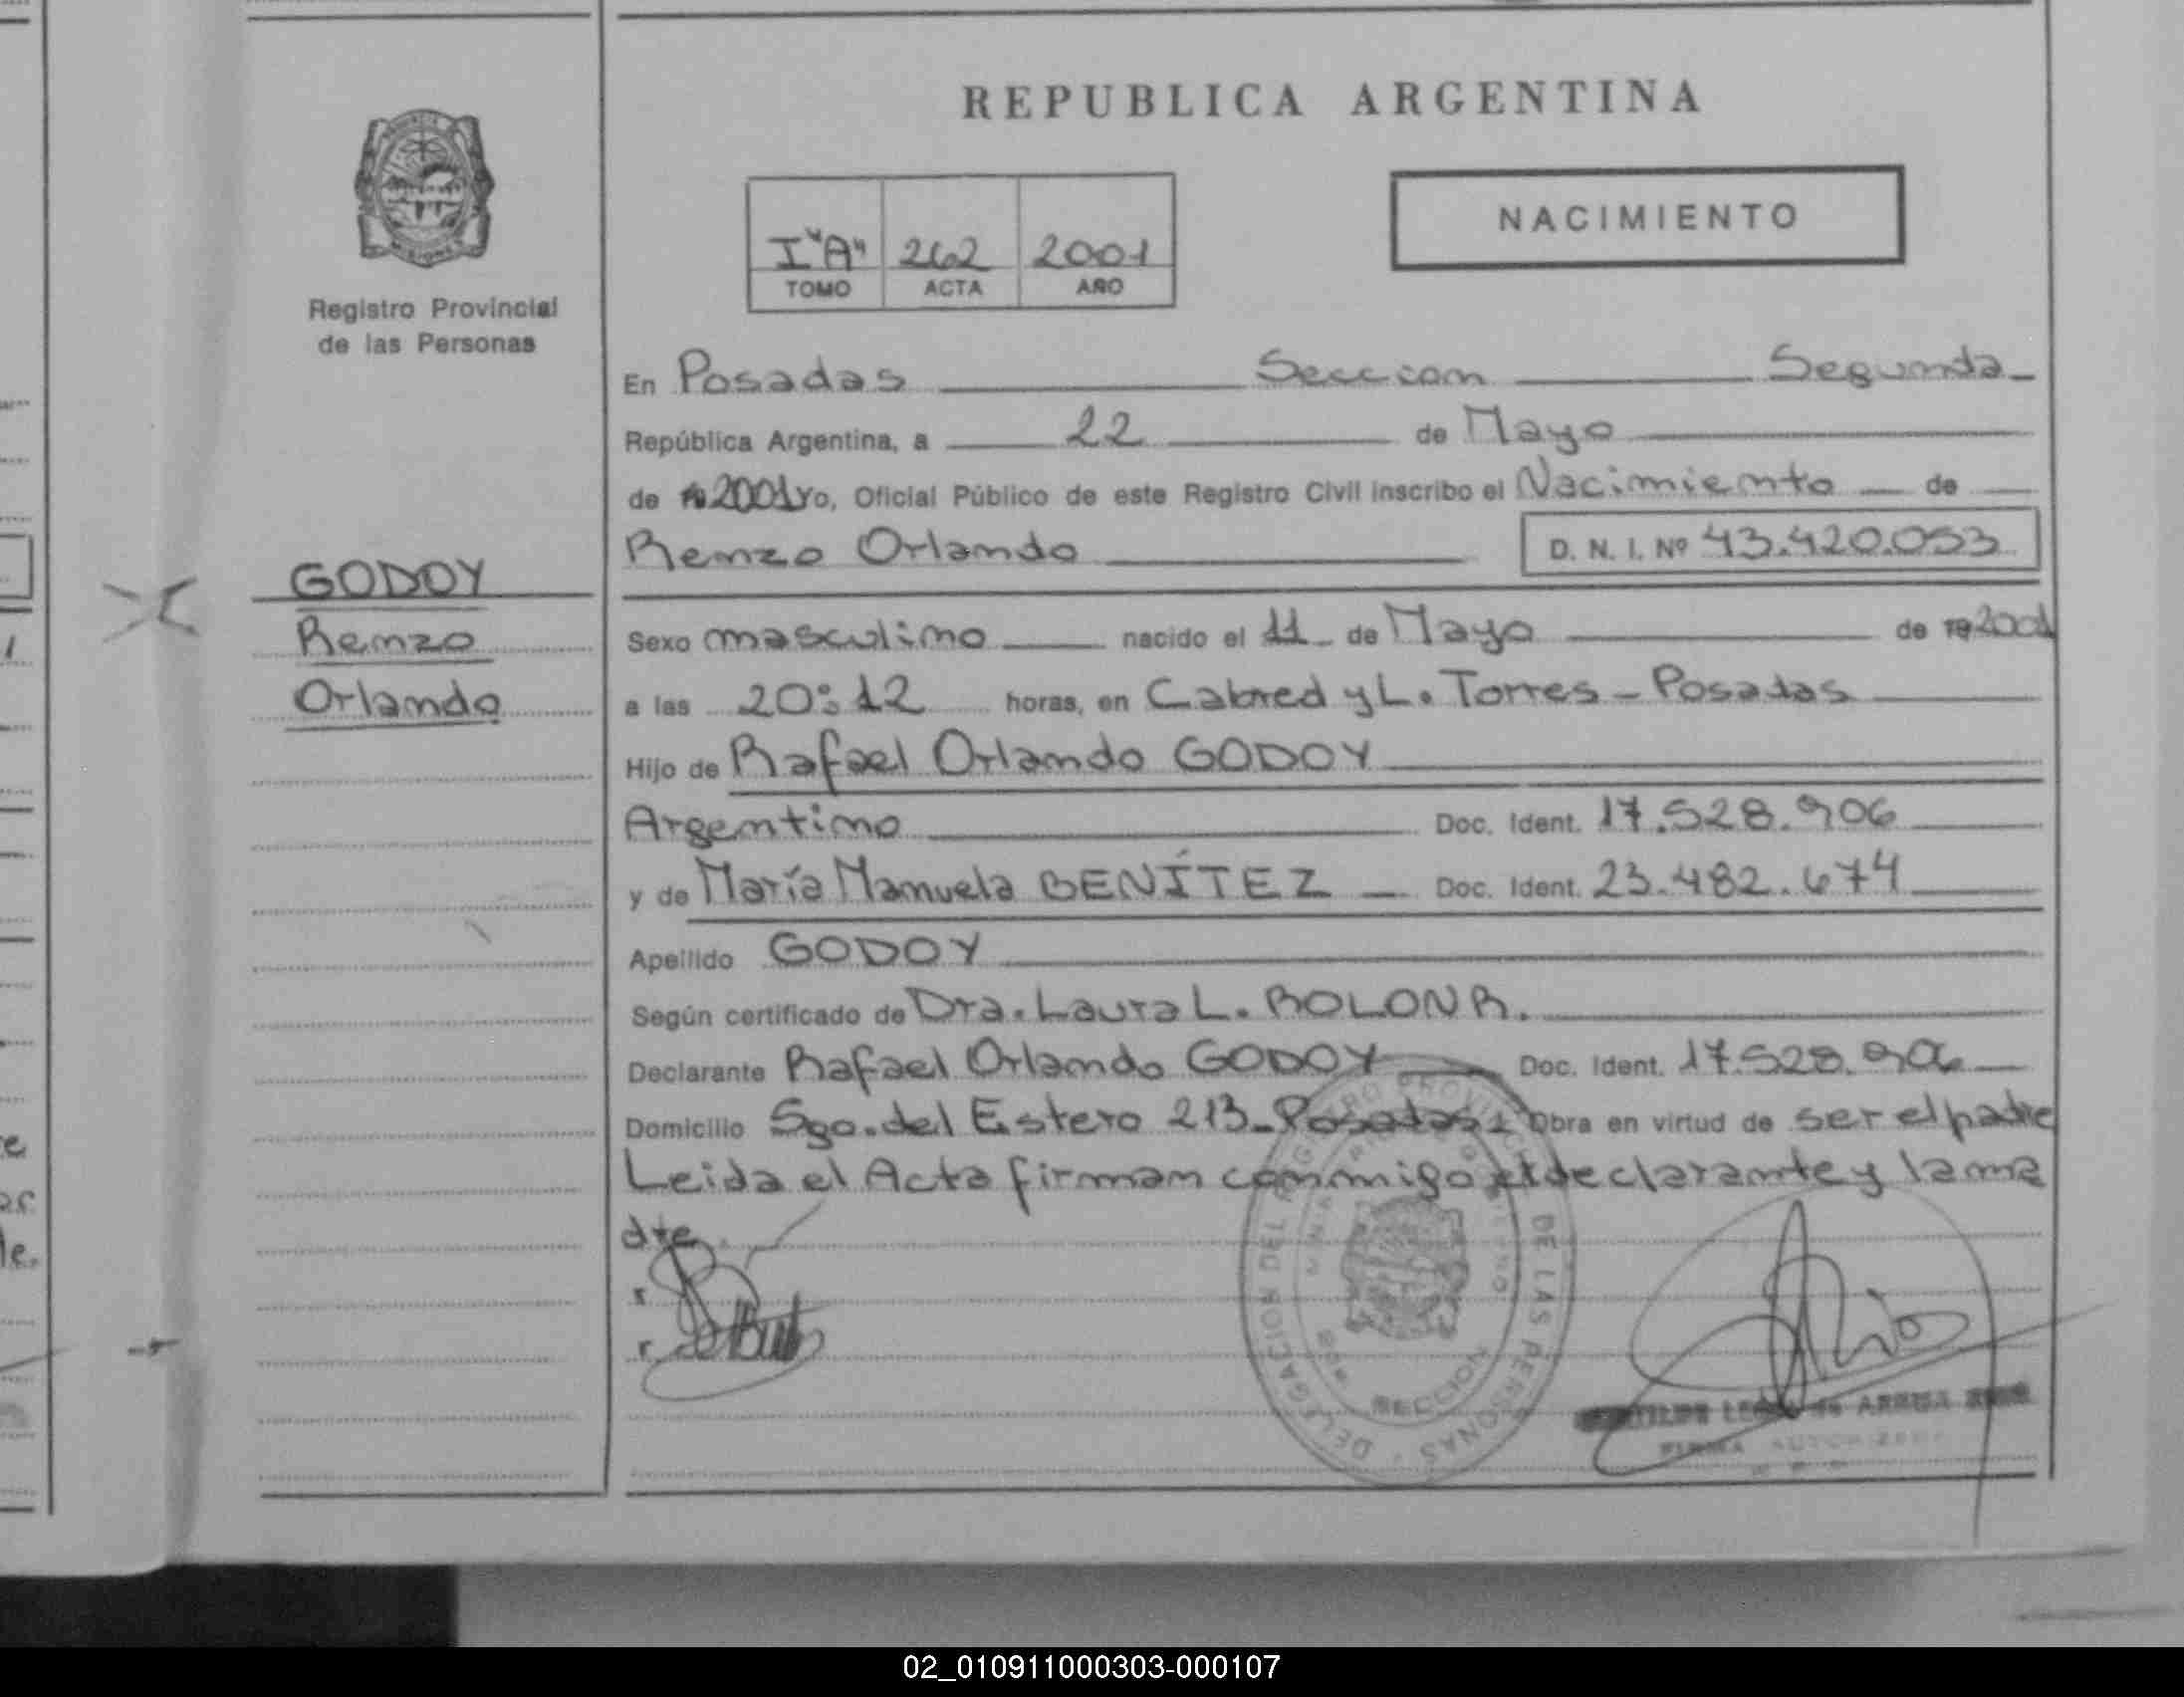 REPUBLICA ARGENTINA
NACIMIENTO
I "A" 262 2001
TOMO ACTA AÑO
Registro Provincial
de las Personas
En Posadas Seccion Segunda
República Argentina, a 22 de Mayo
de 192001 Yo, Oficial Público de este Registro Civil inscribo el Nacimiento de
Renzo Orlando D. N. I. Nº 43.420.053
GODOY
Renzo
Orlando
Sexo masculino nacido el 11 de Mayo de 192001
a las 20:12 horas, en Cabred y L. Torres - Posadas
Hijo de Rafael Orlando GODOY
Argentino Doc. Ident. 17.528.906
y de María Manuela BENÍTEZ Doc. Ident. 23.482.674
Apellido GODOY
Según certificado de Dra. Laura L. ROLON R.
Declarante Rafael Orlando GODOY Doc. Ident. 17.528.906
Domicilio Sgo. del Estero 213 - Posadas - Obra en virtud de ser el padre
Leida el Acta firman conmigo el declarante y la ma
dre.
DELEGACION DEL REGISTRO PROVINCIAL DE LAS PERSONAS
SECCION
02_010911000303-000107